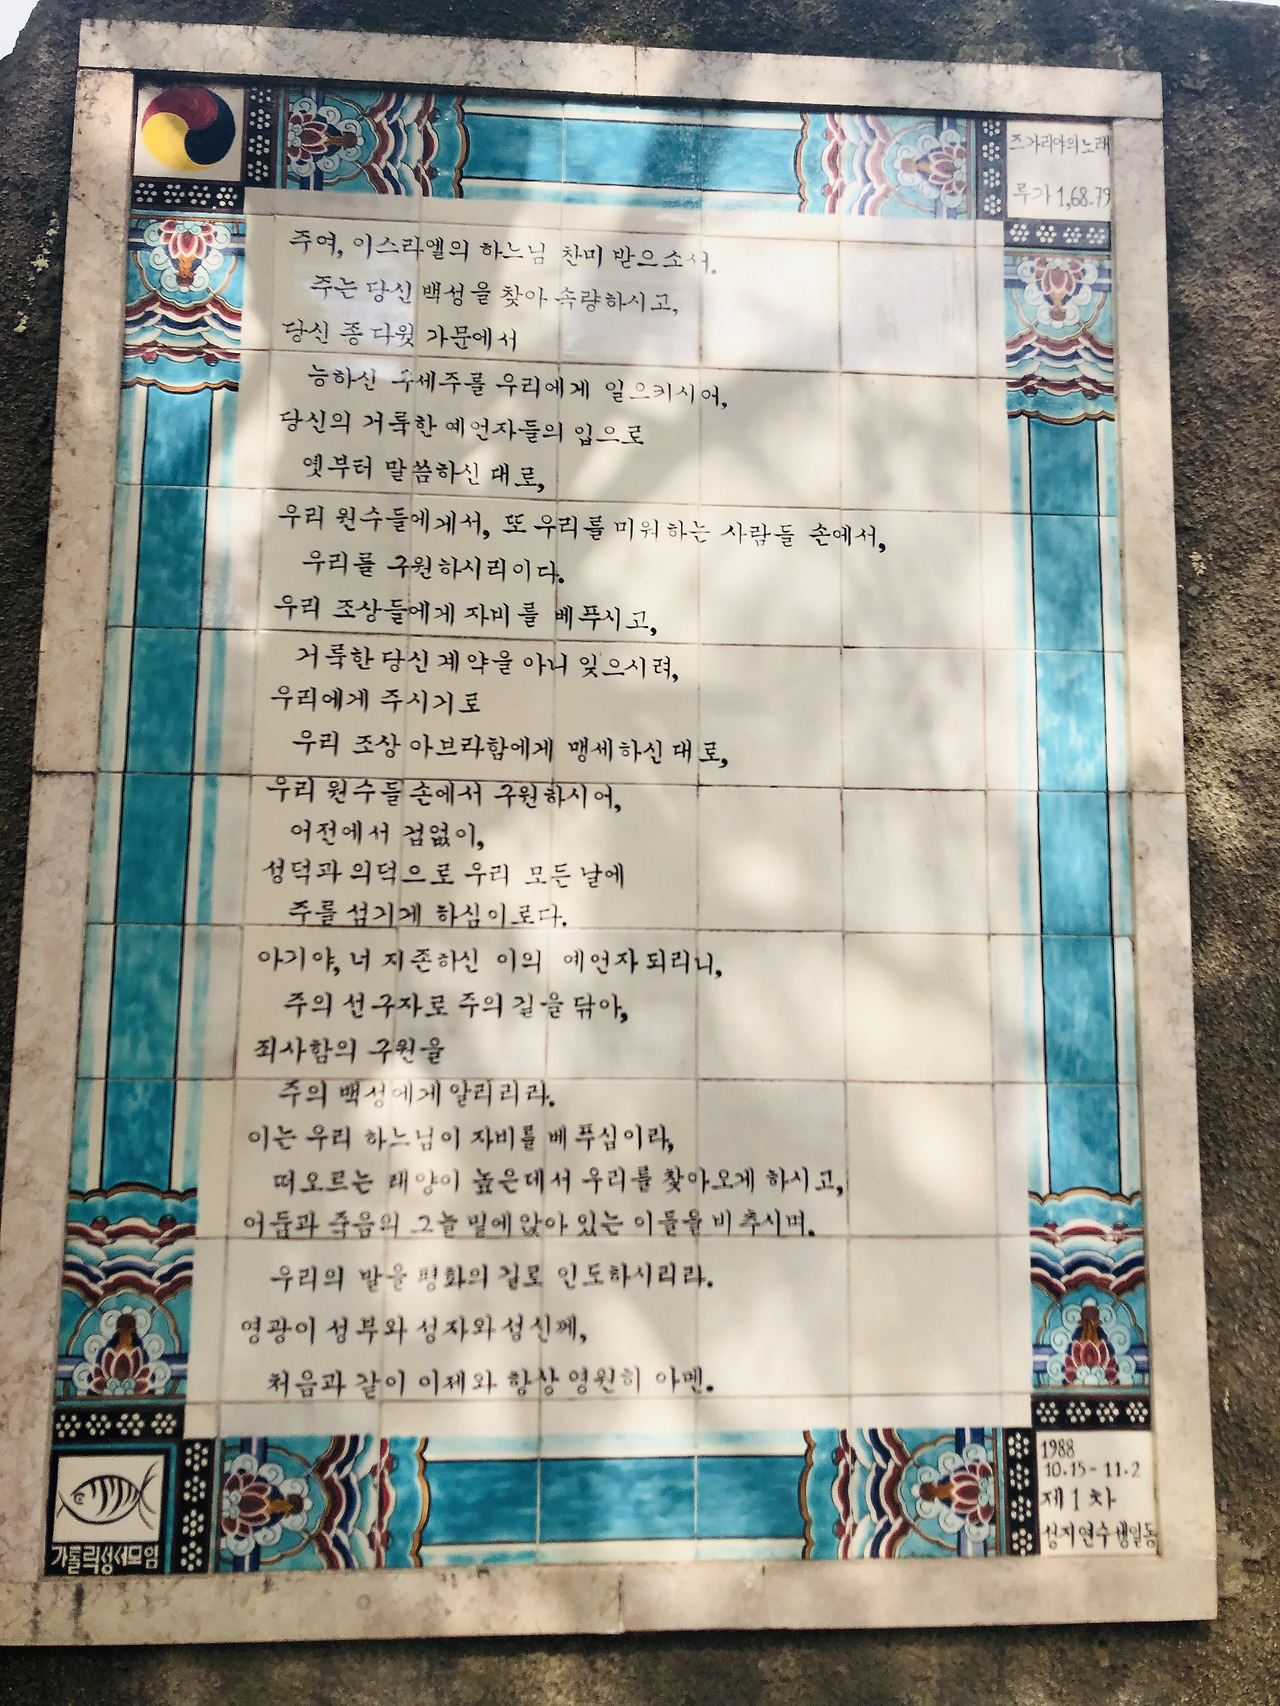 즈가리아의 노래
루가 1,68-79
주여, 이스라엘의 하느님 찬미 받으소서.
주는 당신 백성을 찾아 속량하시고,
당신 종 다윗 가문에서
능하신 구세주를 우리에게 일으키시어,
당신의 거룩한 예언자들의 입으로
옛부터 말씀하신 대로,
우리 원수들에게서, 또 우리를 미워하는 사람들 손에서,
우리를 구원하시리이다.
우리 조상들에게 자비를 베푸시고,
거룩한 당신 계약을 아니 잊으시려,
우리에게 주시기로
우리 조상 아브라함에게 맹세하신 대로,
우리 원수들 손에서 구원하시어,
어전에서 겁없이,
성덕과 의덕으로 우리 모든 날에
주를 섬기게 하심이로다.
아기야, 너 지존하신 이의 예언자 되리니,
주의 선구자로 주의 길을 닦아,
죄사함의 구원을
주의 백성에게 알리리라.
이는 우리 하느님이 자비를 베푸심이라,
떠오르는 태양이 높은데서 우리를 찾아오게 하시고,
어둠과 죽음의 그늘 밑에 앉아 있는 이들을 비추시며.
우리의 발을 평화의 길로 인도하시리라.
영광이 성부와 성자와 성신께,
처음과 같이 이제와 항상 영원히 아멘.
가톨릭성서모임
1988
10.15-11.2
제1차
성지연수생일동